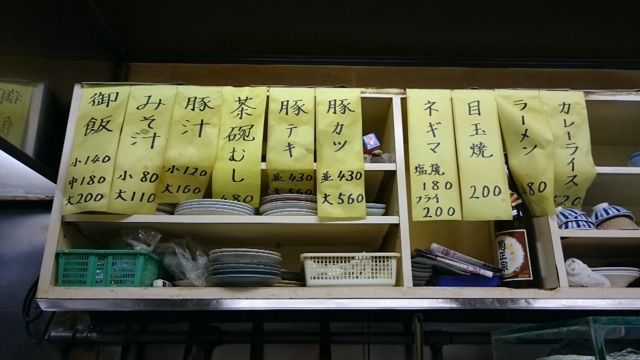 御飯
小140
中180
大200
みそ汁
小 80
大110
豚汁
小120
大160
茶碗むし
480
豚テキ
並430
大560
豚カツ
並430
大560
ネギマ
塩焼
180
フライ
200
目玉焼
200
ラーメン
480
カレーライス
520
菊正宗
御飯